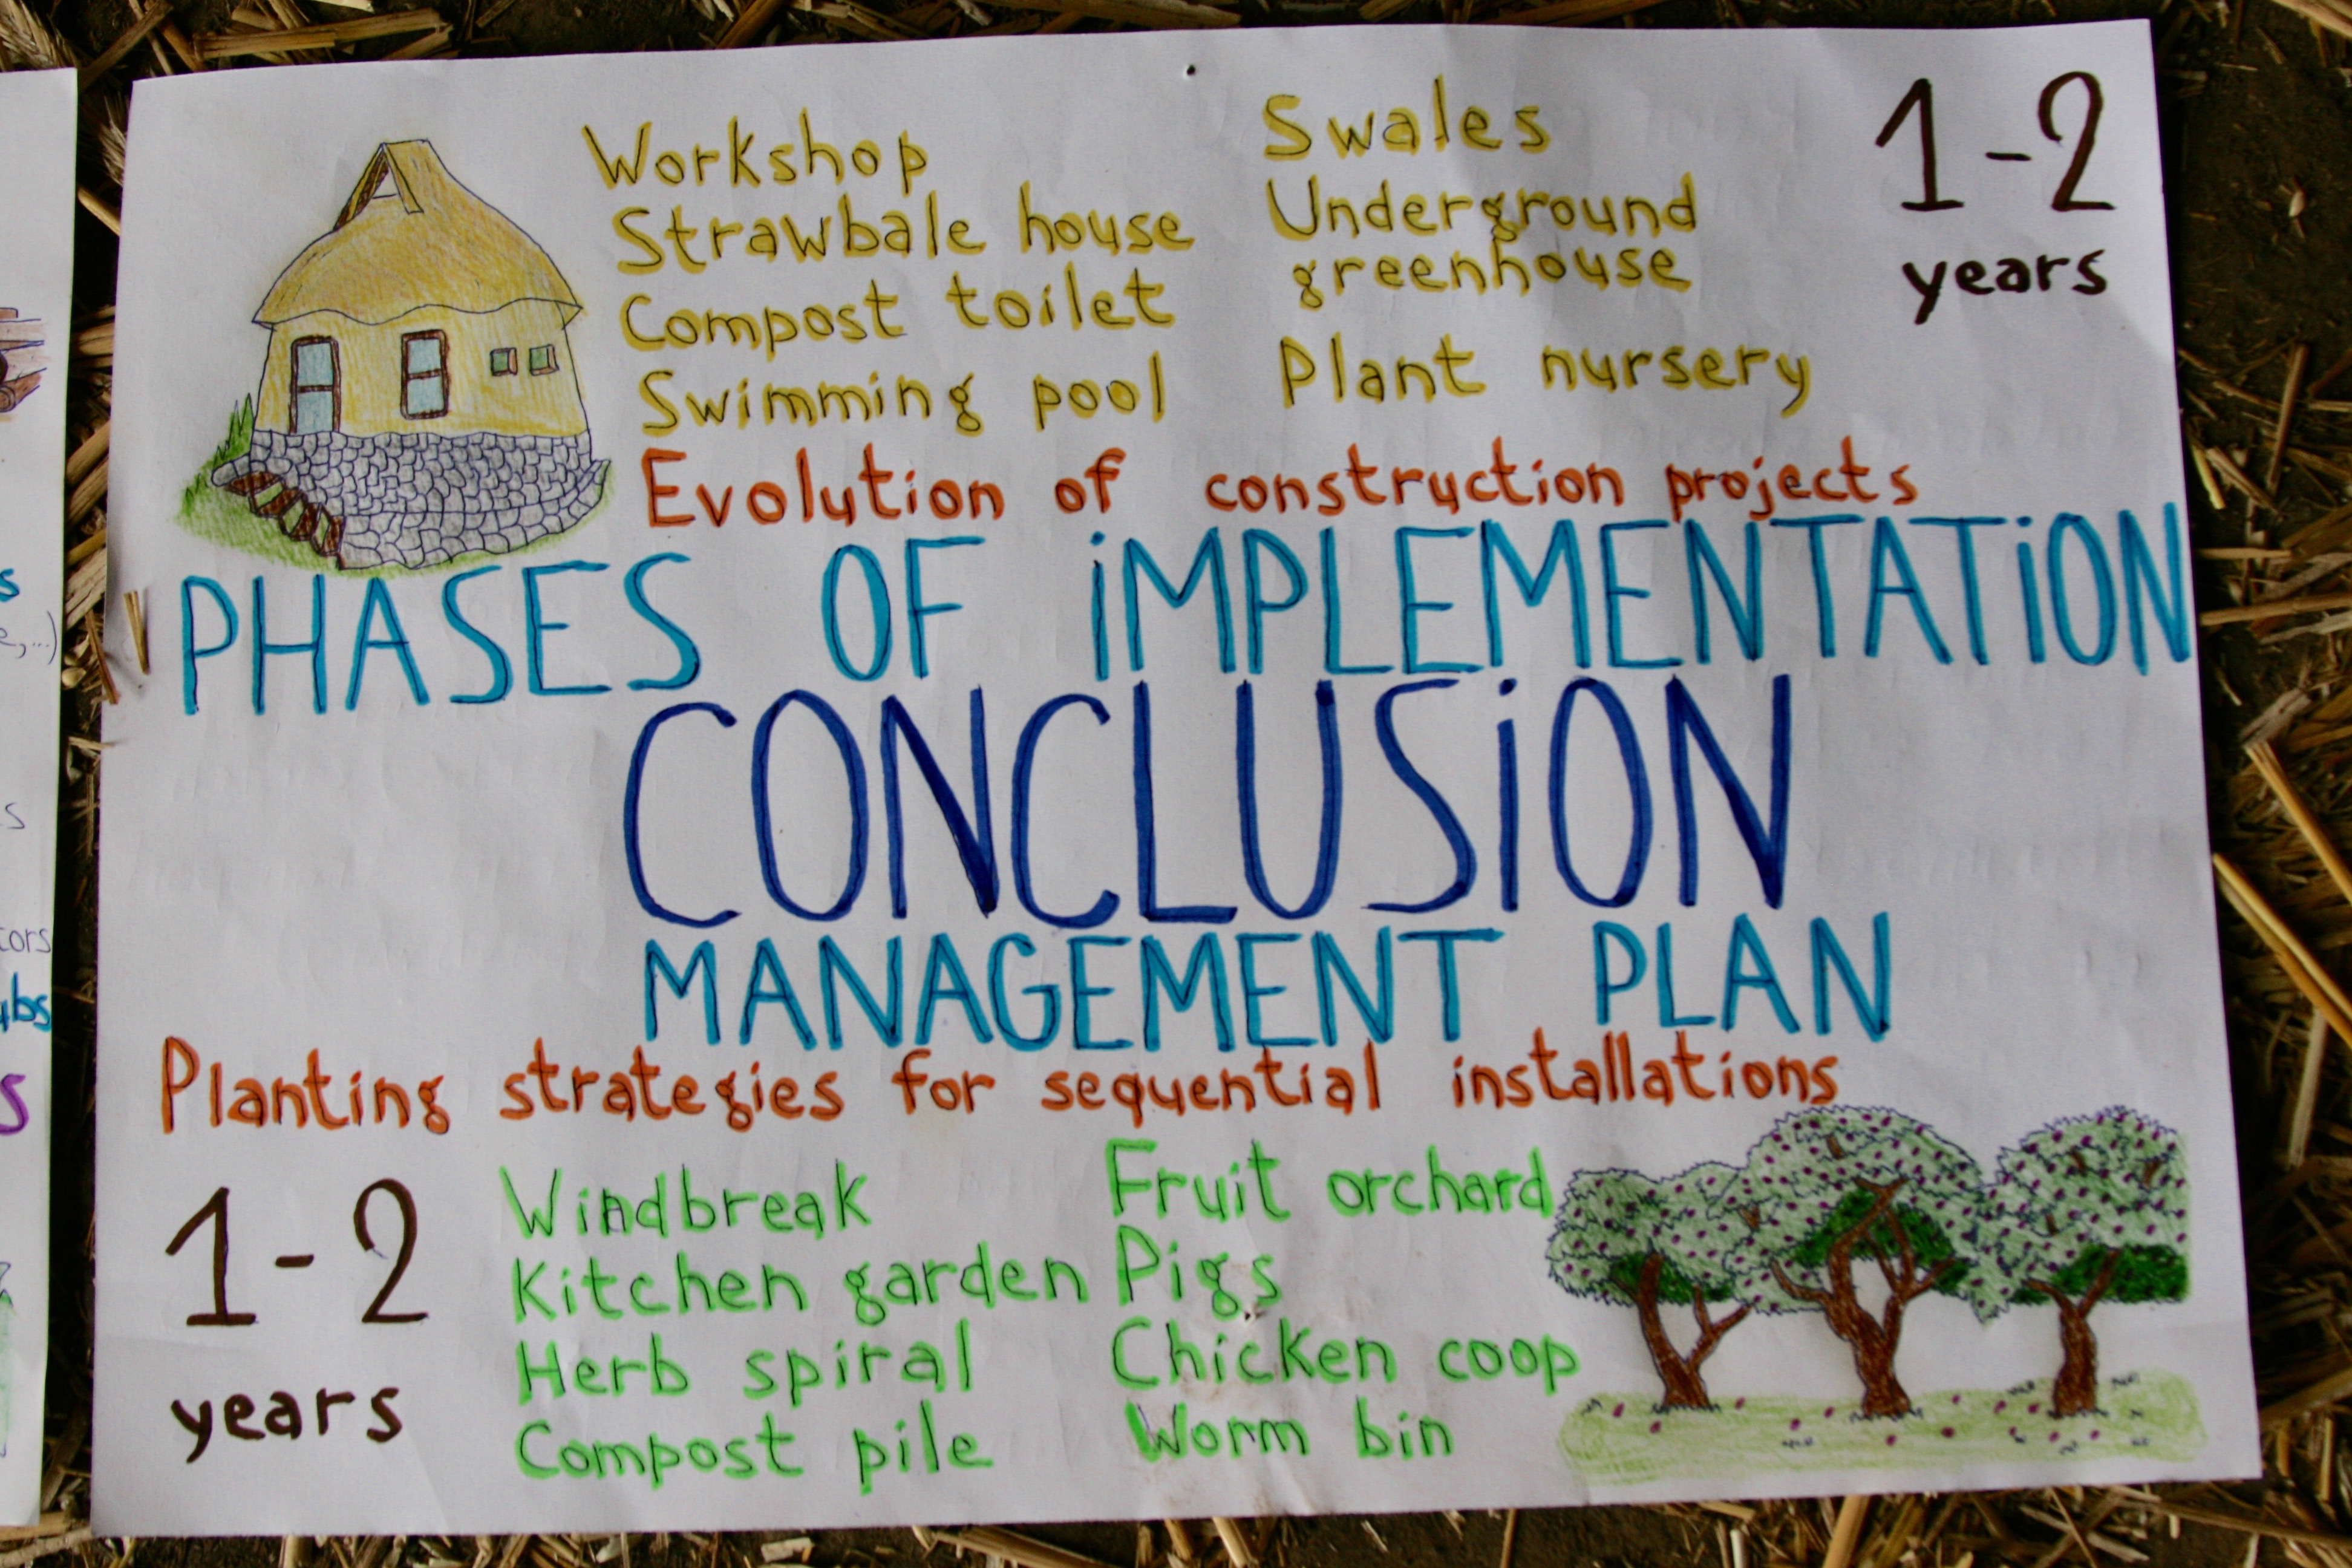 Workshop
Strawbale house
Compost toilet
Swimming pool
Swales
Underground
greenhouse
Plant nursery
1-2
years
Evolution of construction projects
PHASES OF iMPLEMENTATiON
CONCLUSiON
MANAGEMENT PLAN
Planting strategies for sequential installations
1-2
years
Windbreak
Kitchen garden
Herb spiral
Compost pile
Fruit orchard
Pigs
Chicken coop
Worm bin